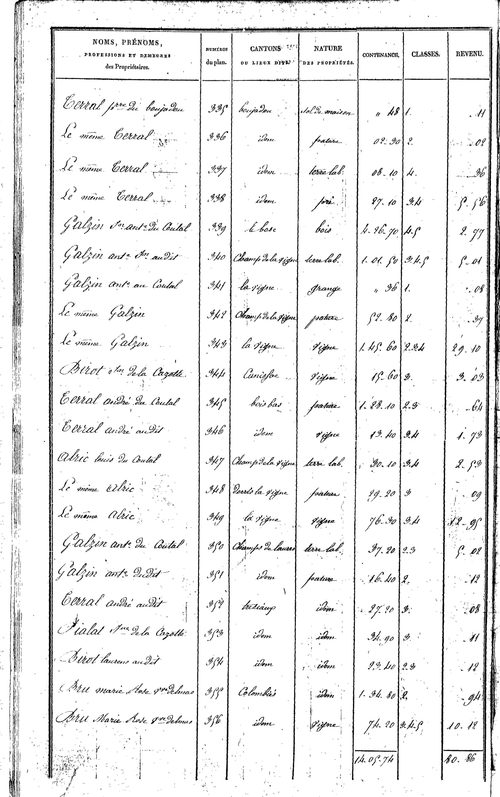 NOMS, PRÉNOMS, PROFESSIONS ET DEMEURES des Propriétaires. NUMÉROS du plan. CANTONS OU LIEUX DITS. NATURE DES PROPRIÉTÉS. CONTENANCE. CLASSES. REVENU.
Terral pre du boujadou 335 boujadou sol de maison " 48 1. . 11
Le même Terral 336 idem pature 02. 30 2. . 02
Le même Terral 337 idem terre lab. 08. 10 4. . 36
Le même Terral 338 idem pré 27. 10 3.4 5. 56
Galzin ant. du Contal 339 le bosc bois 4. 26. 70 4.5 2. 77
Galzin ant. dit 340 Champ de la vigne terre lab. 1. 01. 50 3.4.5 5. 01
Galzin ant. au Contal 341 la vigne grange " 36 1. . 08
Le même Galzin 342 Champ de la vigne pature 52. 80 2. . 37
Le même Galzin 343 la vigne vigne 1. 45. 60 2.3.4 29. 10
Birot de la Cazotte 344 vigne 15. 60 3. 3. 03
Terral andré du Contal 345 bois bas pature 1. 28. 10 2.3 . 64
Terral andré au dit 346 idem vigne 13. 40 3.4 1. 73
Alric louis du Contal 347 Champ de la vigne terre lab. 30. 10 3.4 2. 53
Le même Alric 348 la vigne pature 29. 20 3 . 09
Le même Alric 349 la vigne vigne 76. 30 3.4 12. 95
Galzin ant. du Contal 350 terre lab. 37. 20 2.3 5. 02
Galzin ant. du dit 351 idem pature 16. 40 2. . 12
Terral andré au dit 352 idem 27. 20 3. . 08
Vialat de la Cazotte 353 idem idem 34. 90 3. . 11
Birot laurens au dit 354 idem idem 23. 40 2.3 . 12
Bru marie Rose 355 Colombiés idem 1. 34. 80 2. . 94
Bru Marie Rose 356 idem vigne 74. 20 3.4.5 10. 12
14. 05. 74 80. 86